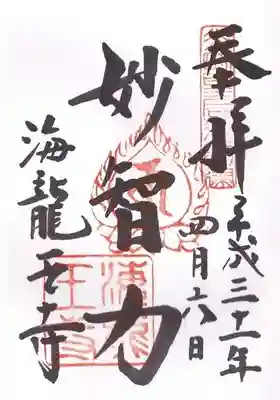 奉拝
平成三十一年
四月六日
妙智力
海龍王寺